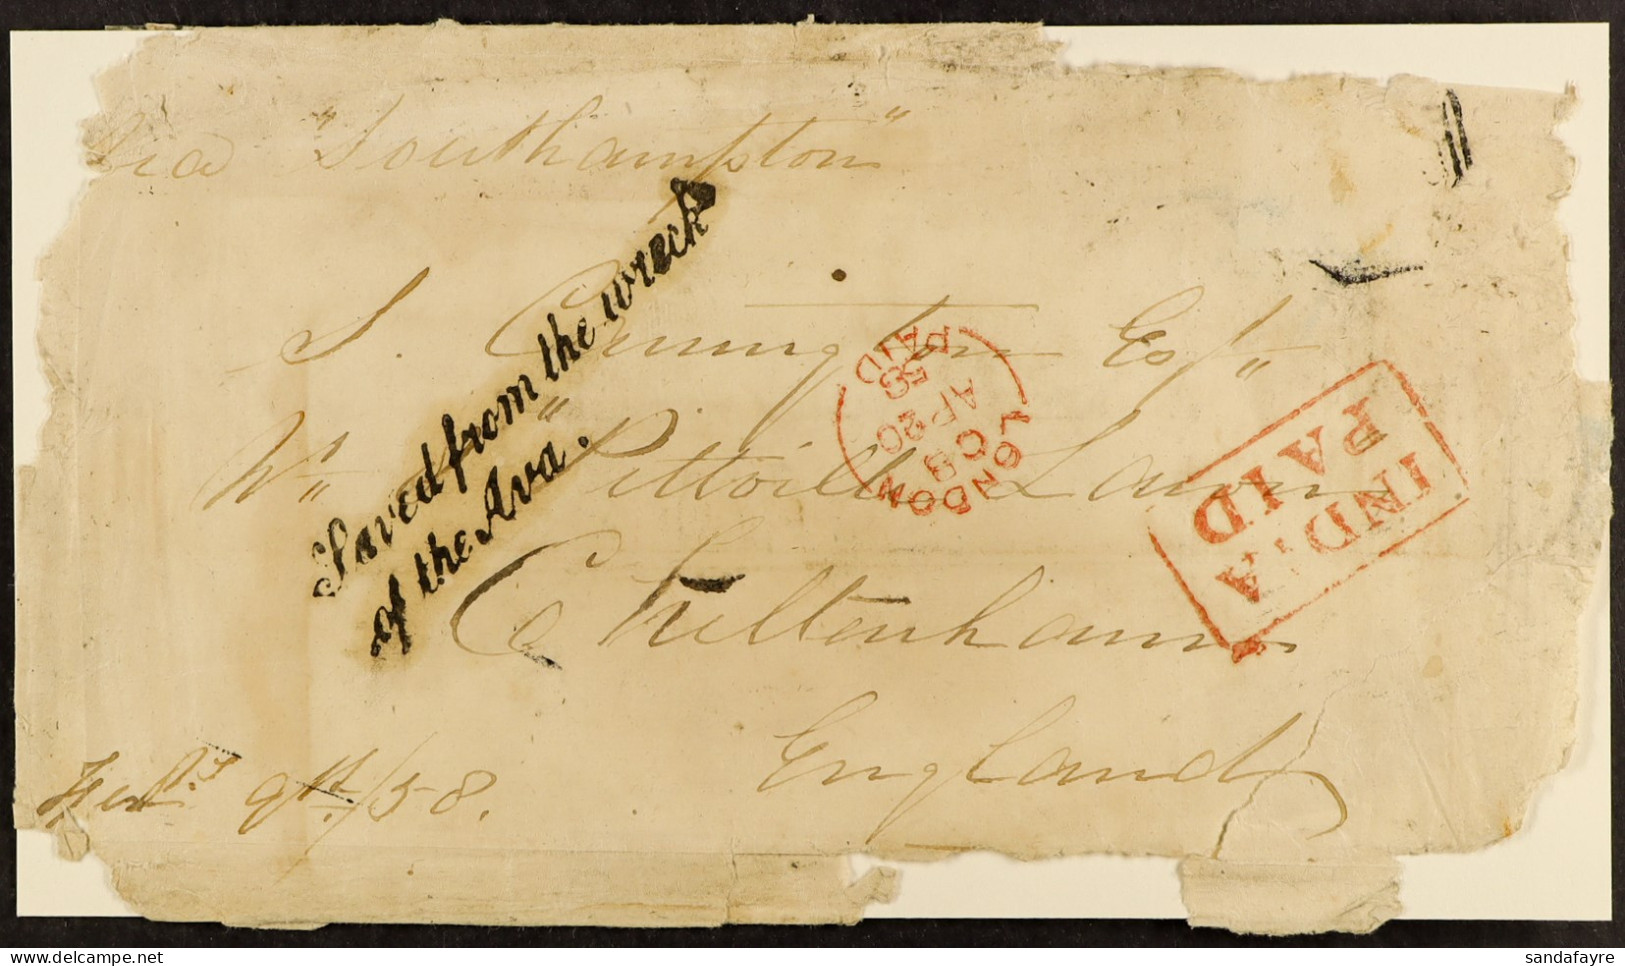 Via "Southampton"
Saved from the wreck
of the Ava.
S. Cunnington Esqr
Wn "Pittville Lawn
Cheltenham
England
9th/58.
LONDON
C8
AP 20
58
PAID
INDIA
PAID
sandafayre